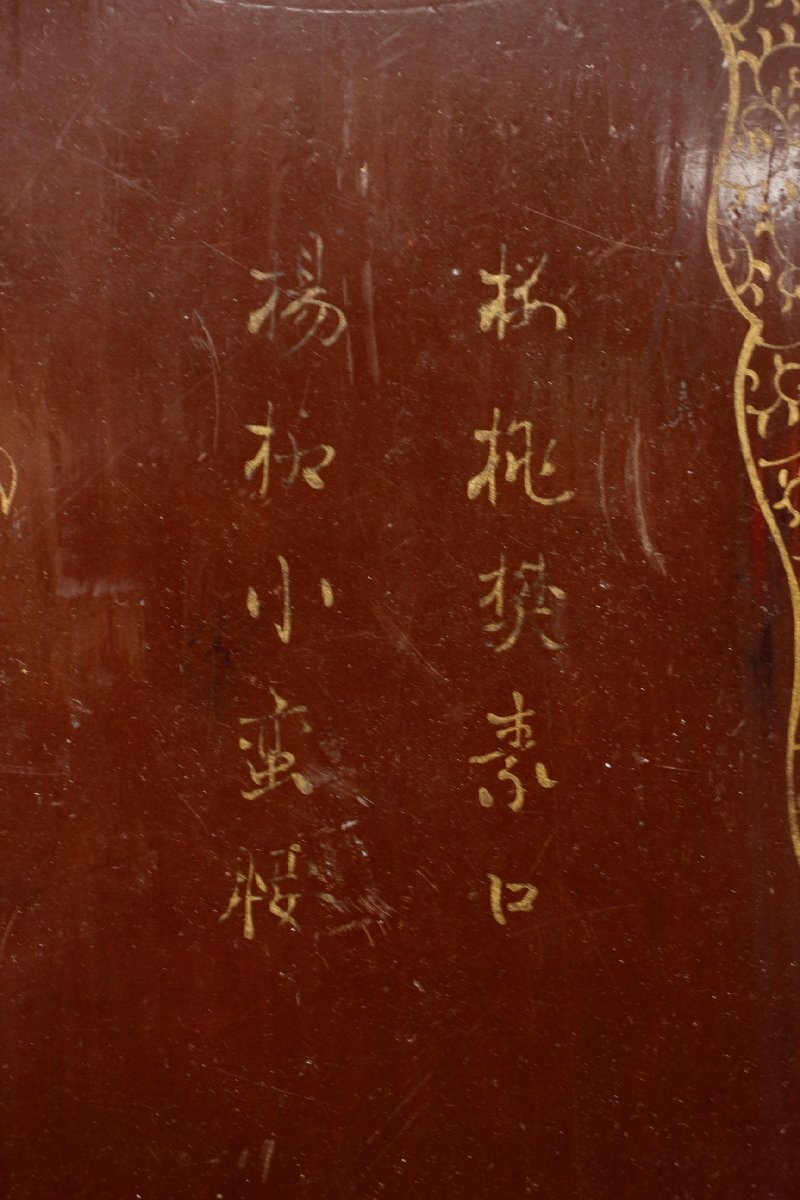 桜桃樊素口
楊柳小蛮腰